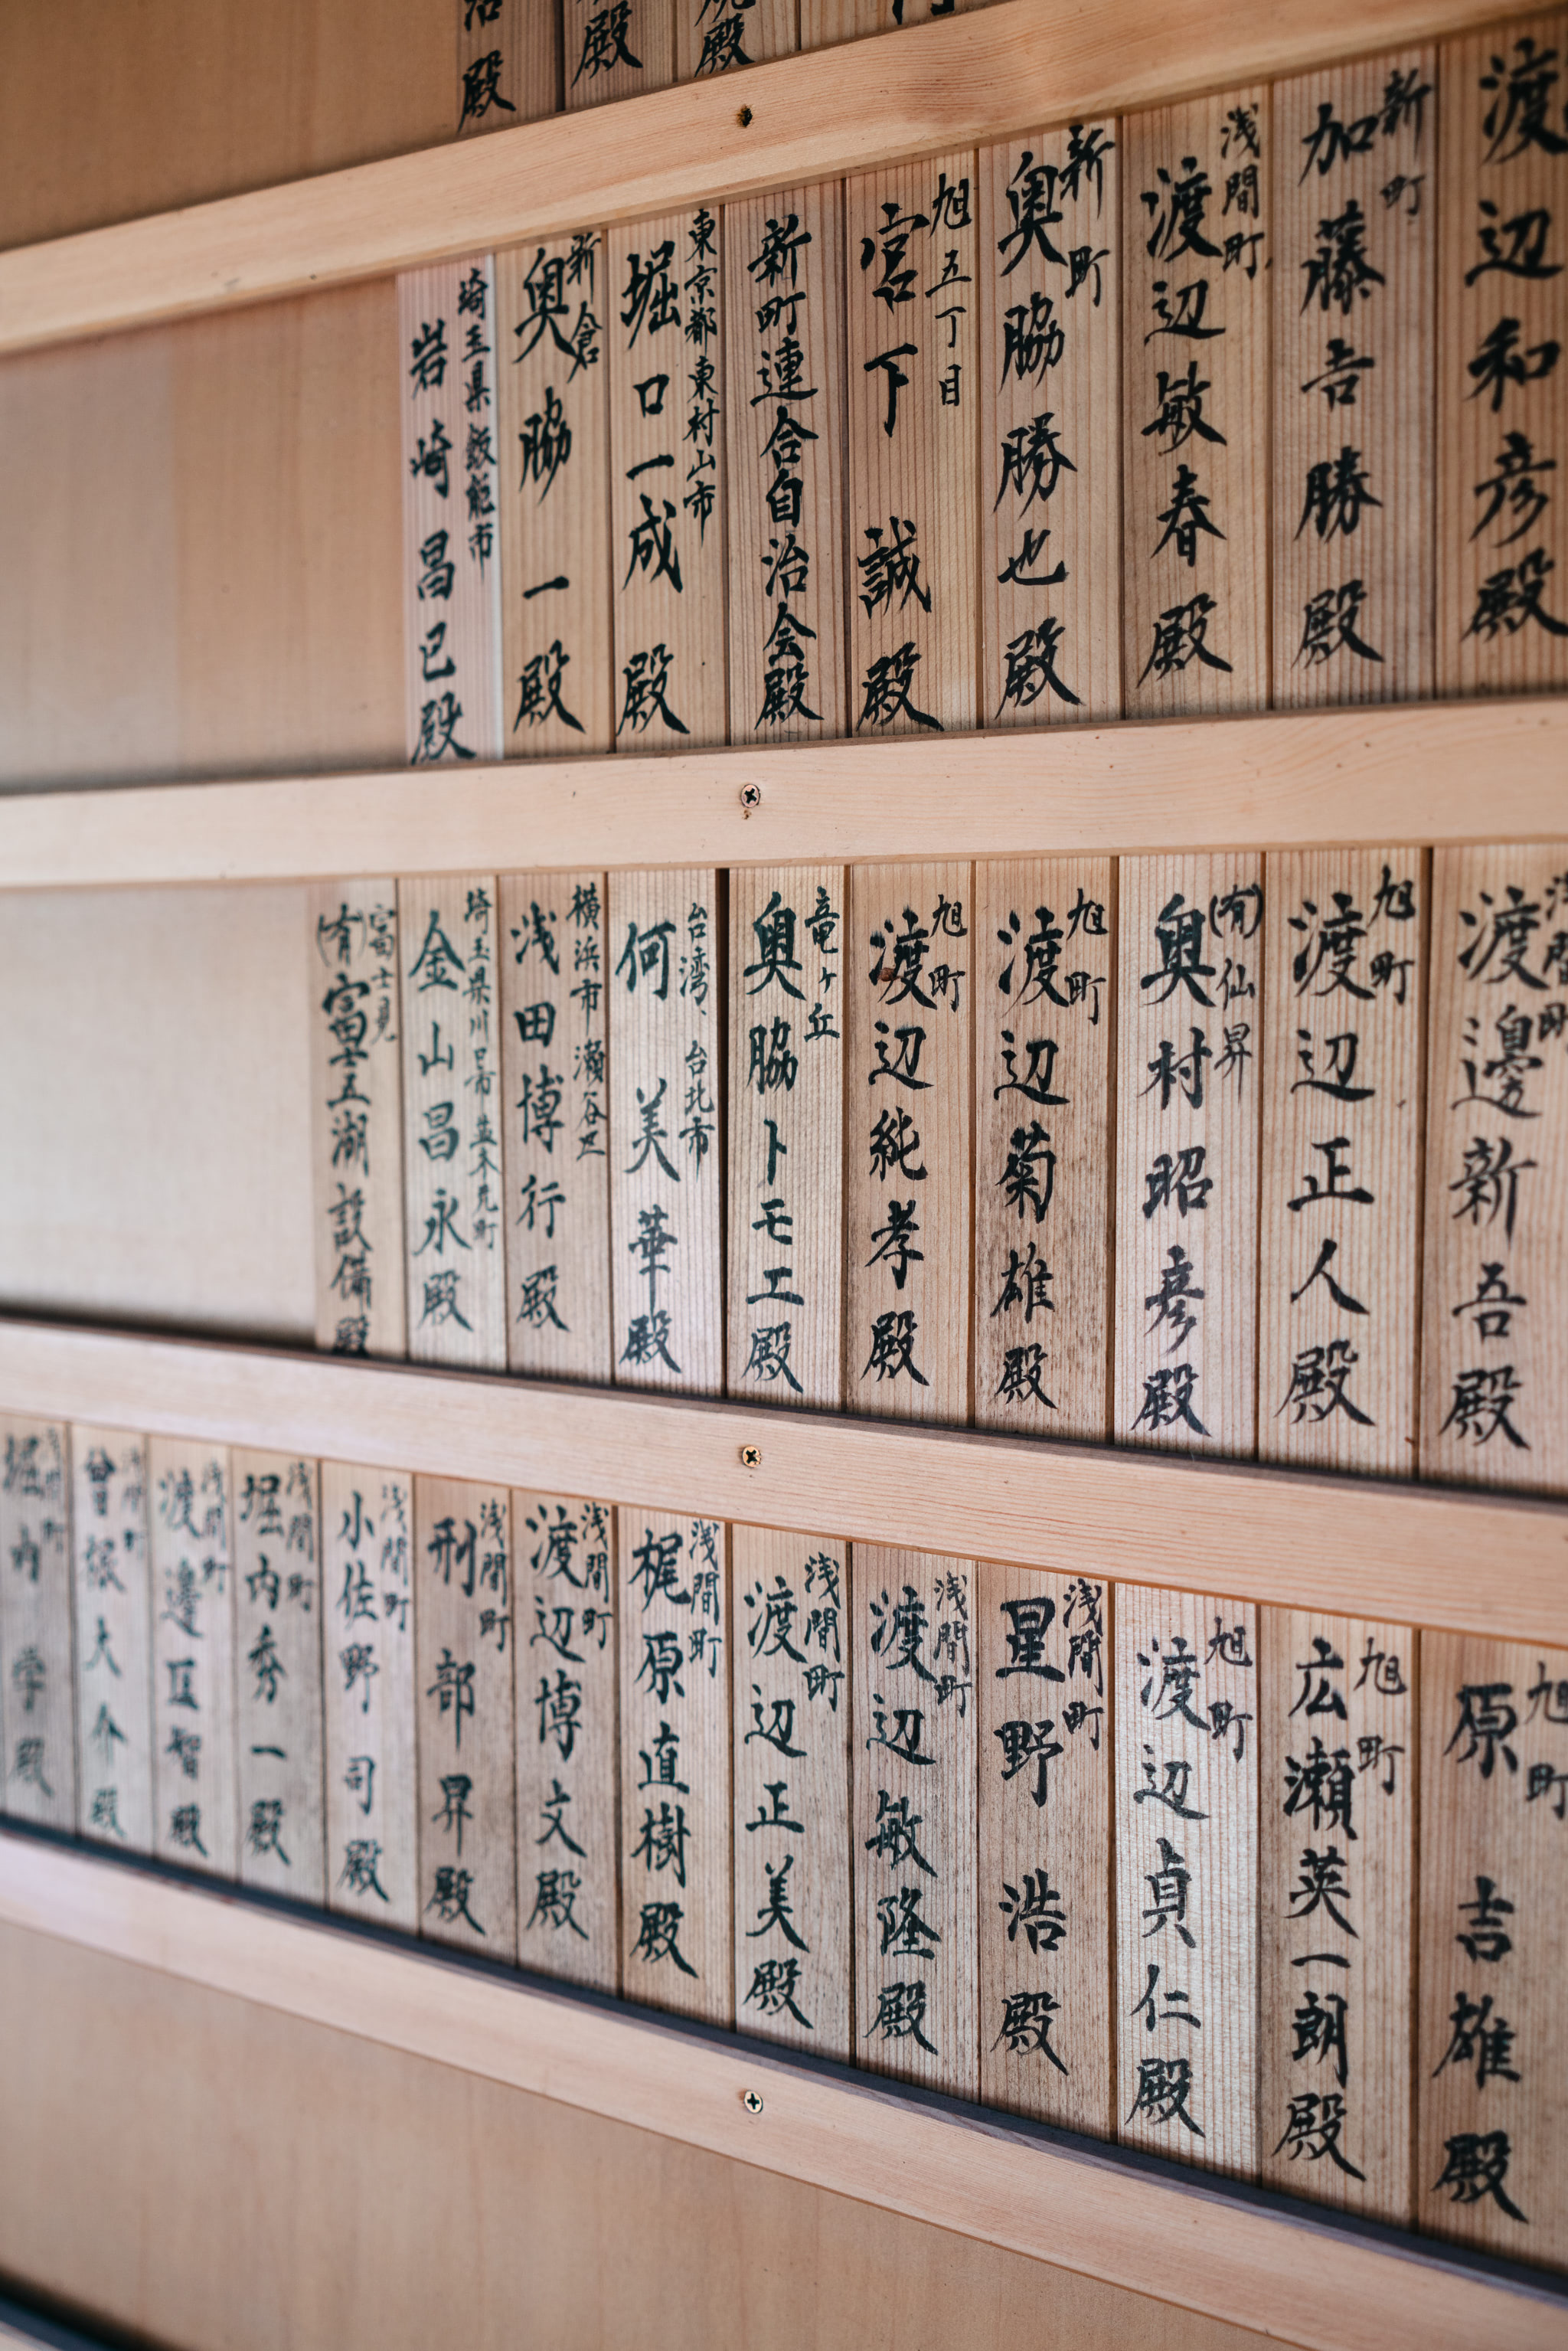 殿
殿
殿
渡辺和彦殿
新町
加藤吉勝殿
浅間町
渡辺敏春殿
新町
奥脇勝也殿
旭五丁目
宮下 誠殿
新町連合自治会殿
東京都東村山市
堀口一成 殿
新倉
奥脇 一殿
埼玉県飯能市
岩崎昌巳殿
浅間町
渡邊新吾殿
旭町
渡辺正人殿
(有)仙昇
奥村昭彦殿
旭町
渡辺菊雄殿
旭町
渡辺純孝殿
竜ヶ丘
奥脇トモエ殿
台湾、台北市
何 美華殿
横浜市瀬谷区
浅田博行殿
埼玉県川口市並木元町
金山昌永殿
富士見
(有)富士五湖設備殿
旭町
原 吉雄殿
旭町
広瀬英一朗殿
旭町
渡辺貞仁殿
浅間町
星野 浩殿
浅間町
渡辺敏隆殿
浅間町
渡辺正美殿
浅間町
梶原直樹殿
浅間町
渡辺博文殿
浅間町
刑部 昇殿
浅間町
小佐野 司殿
浅間町
堀内秀一殿
浅間町
渡邊 智殿
浅間町
曾根大介殿
浅間町
堀内 学殿